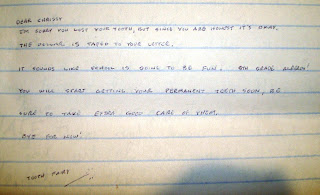 DEAR CHRISSY
I'M SORRY YOU LOST YOUR TOOTH, BUT SINCE YOU ARE HONEST IT'S OKAY.
THE DOLLAR IS TAPED TO YOUR LETTER.
IT SOUNDS LIKE SCHOOL IS GOING TO BE FUN. 5TH GRADE ALREADY!
YOU WILL START GETTING YOUR PERMANENT TEETH SOON, BE
SURE TO TAKE EXTRA GOOD CARE OF THEM.
BYE FOR NOW!
TOOTH FAIRY